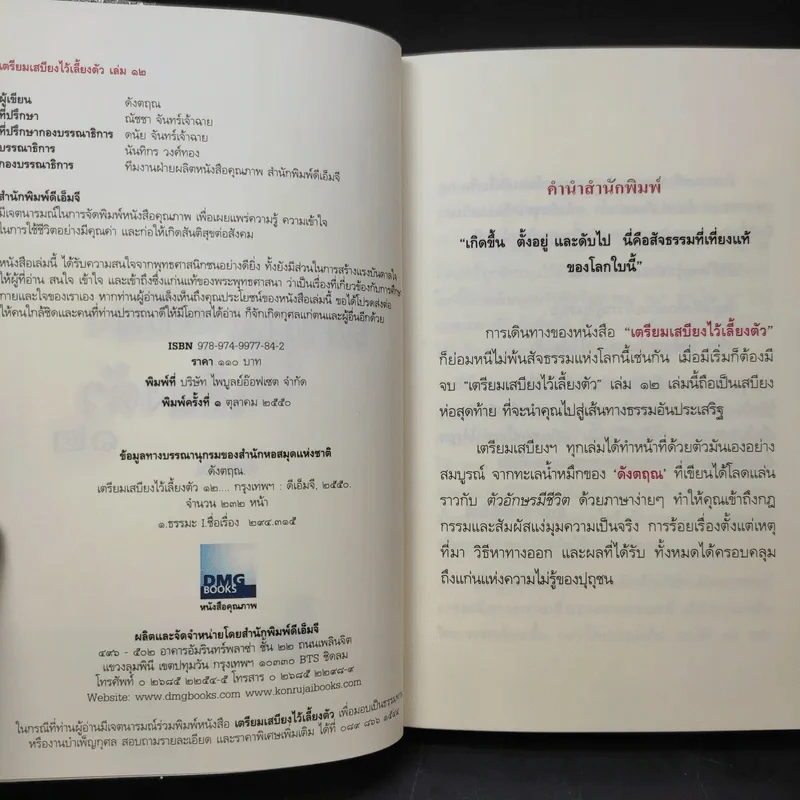 เตรียมเสบียงไว้เลี้ยงตัว เล่ม ๑๒
ผู้เขียน ดังตฤณ
ที่ปรึกษา ณัชชา จันทร์เจ้าฉาย
ที่ปรึกษากองบรรณาธิการ ดนัย จันทร์เจ้าฉาย
บรรณาธิการ นันทิกร วงศ์ทอง
กองบรรณาธิการ ทีมงานฝ่ายผลิตหนังสือคุณภาพ สำนักพิมพ์ดีเอ็มจี
สำนักพิมพ์ดีเอ็มจี
มีเจตนารมณ์ในการจัดพิมพ์หนังสือคุณภาพ เพื่อเผยแพร่ความรู้ ความเข้าใจ
ในการใช้ชีวิตอย่างมีคุณค่า และก่อให้เกิดสันติสุขต่อสังคม
หนังสือเล่มนี้ ได้รับความสนใจจากพุทธศาสนิกชนอย่างดียิ่ง ทั้งยังมีส่วนในการสร้างแรงบันดาลใจ
ให้ผู้ที่อ่าน สนใจ เข้าใจ และเข้าถึงซึ่งแก่นแท้ของพระพุทธศาสนา ว่าเป็นเรื่องที่เกี่ยวข้องกับการศึกษา
กายและใจของเราเอง หากท่านผู้อ่านเล็งเห็นถึงคุณประโยชน์ของหนังสือเล่มนี้ ขอได้โปรดส่งต่อ
ให้คนใกล้ชิดและคนที่ท่านปรารถนาดีให้มีโอกาสได้อ่าน ก็จักเกิดกุศลแก่ตนและผู้อื่นอีกด้วย
ISBN 978-974-9977-84-2
ราคา ๑๑๐ บาท
พิมพ์ที่ บริษัท ไพบูลย์อ๊อฟเซต จำกัด
พิมพ์ครั้งที่ ๑ ตุลาคม ๒๕๕๐
ข้อมูลทางบรรณานุกรมของสำนักหอสมุดแห่งชาติ
ดังตฤณ.
เตรียมเสบียงไว้เลี้ยงตัว ๑๒.... กรุงเทพฯ : ดีเอ็มจี, ๒๕๕๐.
จำนวน ๒๓๒ หน้า
๑.ธรรมะ I.ชื่อเรื่อง ๒๙๔.๓๑๕
DMG
BOOKS
หนังสือคุณภาพ
ผลิตและจัดจำหน่ายโดยสำนักพิมพ์ดีเอ็มจี
๔๙๖ - ๕๐๒ อาคารอัมรินทร์พลาซ่า ชั้น ๒๒ ถนนเพลินจิต
แขวงลุมพินี เขตปทุมวัน กรุงเทพฯ ๑๐๓๓๐ BTS ชิดลม
โทรศัพท์ ๐ ๒๖๘๕ ๒๒๕๔-๕ โทรสาร ๐ ๒๖๘๕ ๒๒๙๘-๙
Website: www.dmgbooks.com www.konrujaibooks.com
ในกรณีที่ท่านผู้อ่านมีเจตนารมณ์ร่วมพิมพ์หนังสือ เตรียมเสบียงไว้เลี้ยงตัว เพื่อมอบเป็นธรรมทาน
หรืองานบำเพ็ญกุศล สอบถามรายละเอียด และราคาพิเศษเพิ่มเติม ได้ที่ ๐๘๙ ๘๖๖ ๑๕๕๔
คำนำสำนักพิมพ์
“เกิดขึ้น ตั้งอยู่ และดับไป นี่คือสัจธรรมที่เที่ยงแท้
ของโลกใบนี้”
การเดินทางของหนังสือ “เตรียมเสบียงไว้เลี้ยงตัว”
ก็ย่อมหนีไม่พ้นสัจธรรมแห่งโลกนี้เช่นกัน เมื่อมีเริ่มก็ต้องมี
จบ “เตรียมเสบียงไว้เลี้ยงตัว” เล่ม ๑๒ เล่มนี้ถือเป็นเสบียง
ห่อสุดท้าย ที่จะนำคุณไปสู่เส้นทางธรรมอันประเสริฐ
เตรียมเสบียงฯ ทุกเล่มได้ทำหน้าที่ด้วยตัวมันเองอย่าง
สมบูรณ์ จากทะเลน้ำหมึกของ ‘ดังตฤณ’ ที่เขียนได้โลดแล่น
ราวกับ ตัวอักษรมีชีวิต ด้วยภาษาง่ายๆ ทำให้คุณเข้าถึงกฎ
กรรมและสัมผัสแง่มุมความเป็นจริง การร้อยเรื่องตั้งแต่เหตุ
ที่มา วิธีหาทางออก และผลที่ได้รับ ทั้งหมดได้ครอบคลุม
ถึงแก่นแห่งความไม่รู้ของปุถุชน